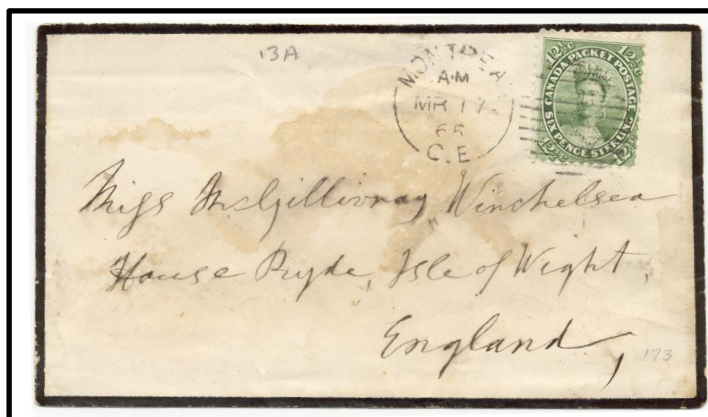 13A
MONTREAL
A·M
MR 17
65
C.E
12½c 12½c
CANADA PACKET POSTAGE
SIX PENCE STERLING
12½c 12½c
Miss McGillivray Winchelsea
House Ryde, Isle of Wight,
England,
173